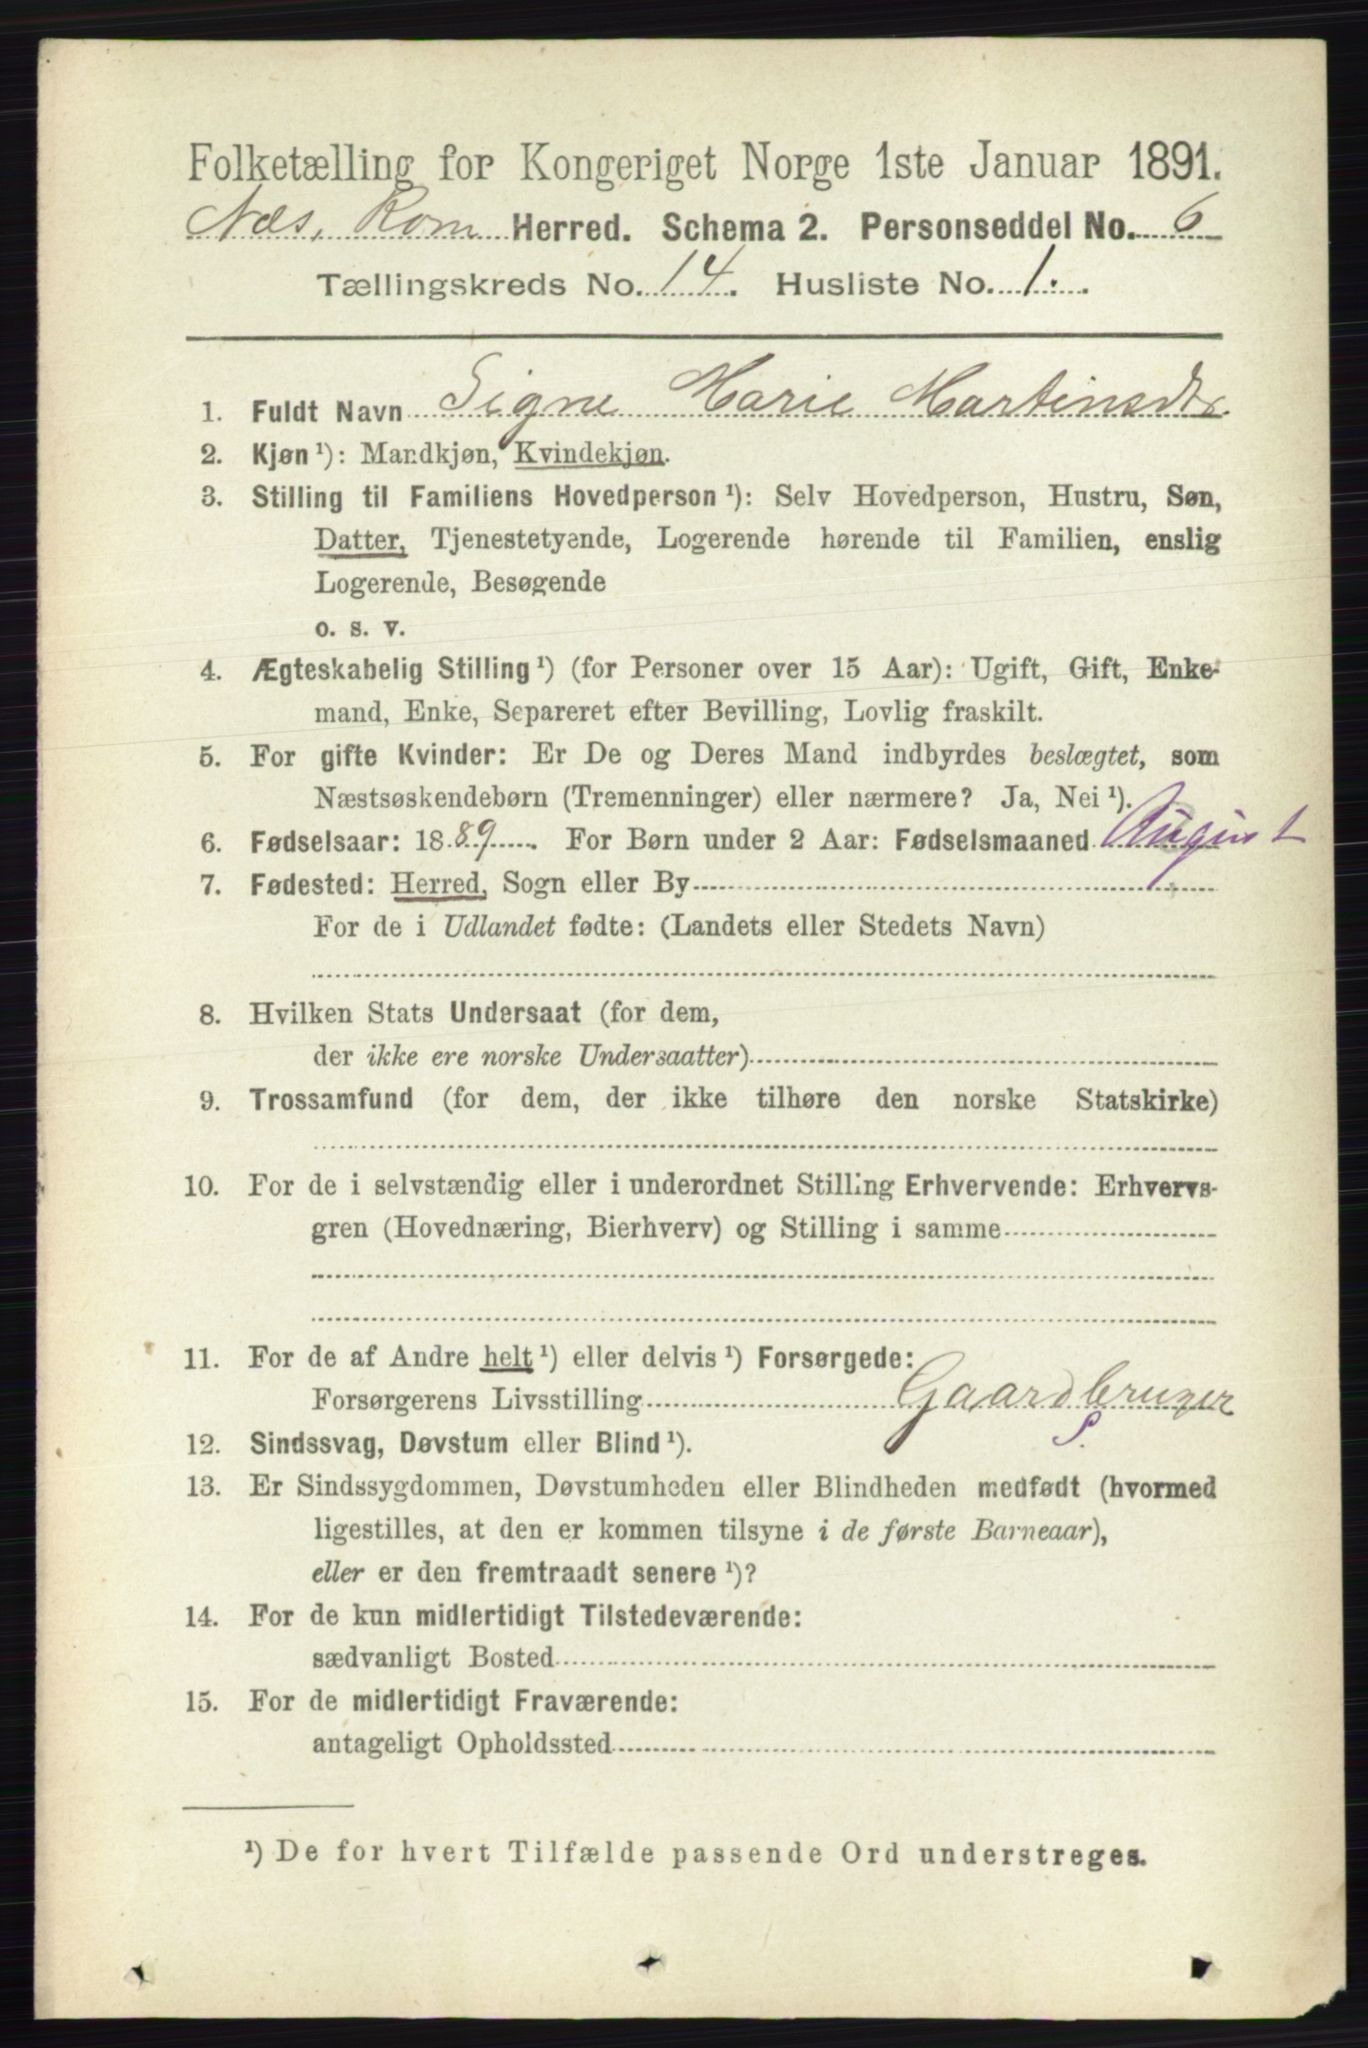 Folketælling for Kongeriget Norge 1ste Januar 1891.
Næs, Rom Herred. Schema 2. Personseddel No. 6
Tællingskreds No. 14. Husliste No. 1.
1. Fuldt Navn Signe Marie Martinsdtr.
2. Kjøn ¹): Mandkjøn, Kvindekjøn.
3. Stilling til Familiens Hovedperson ¹): Selv Hovedperson, Hustru, Søn,
Datter, Tjenestetyende, Logerende hørende til Familien, enslig
Logerende, Besøgende
o. s. v.
4. Ægteskabelig Stilling ¹) (for Personer over 15 Aar): Ugift, Gift, Enke-
mand, Enke, Separeret efter Bevilling, Lovlig fraskilt.
5. For gifte Kvinder: Er De og Deres Mand indbyrdes beslægtet, som
Næstsøskendebørn (Tremenninger) eller nærmere? Ja, Nei ¹).
6. Fødselsaar: 1889. For Børn under 2 Aar: Fødselsmaaned August
7. Fødested: Herred, Sogn eller By
For de i Udlandet fødte: (Landets eller Stedets Navn)
8. Hvilken Stats Undersaat (for dem,
der ikke ere norske Undersaatter)
9. Trossamfund (for dem, der ikke tilhøre den norske Statskirke)
10. For de i selvstændig eller i underordnet Stilling Erhvervende: Erhvervs-
gren (Hovednæring, Bierhverv) og Stilling i samme
11. For de af Andre helt ¹) eller delvis ¹) Forsørgede:
Forsørgerens Livsstilling Gaardbruger
S.
12. Sindssvag, Døvstum eller Blind ¹).
13. Er Sindssygdommen, Døvstumheden eller Blindheden medfødt (hvormed
ligestilles, at den er kommen tilsyne i de første Barneaar),
eller er den fremtraadt senere ¹)?
14. For de kun midlertidigt Tilstedeværende:
sædvanligt Bosted
15. For de midlertidigt Fraværende:
antageligt Opholdssted
¹) De for hvert Tilfælde passende Ord understreges.